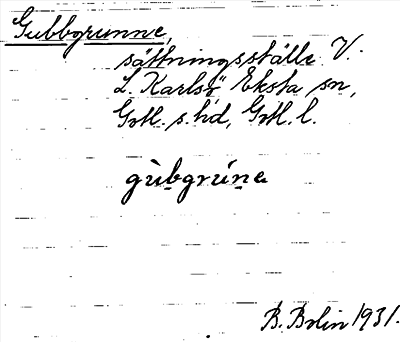 Gubbgrunne,
sättningsställe V.
L. Karlsö Eksta sn,
Gotl. s. hd, Gotl. l.
gùbgrúne
B. Bolin 1931.